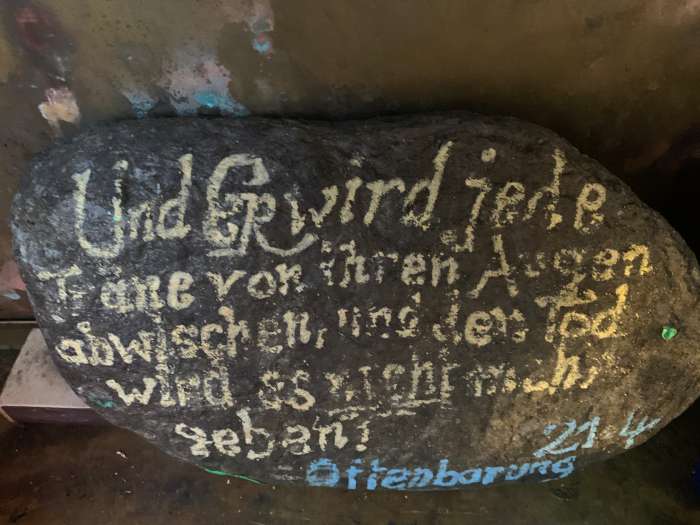 Und ER wird jede
Träne von ihren Augen
abwischen, und den Tod
wird es nicht mehr
geben!
21.4
Offenbarung